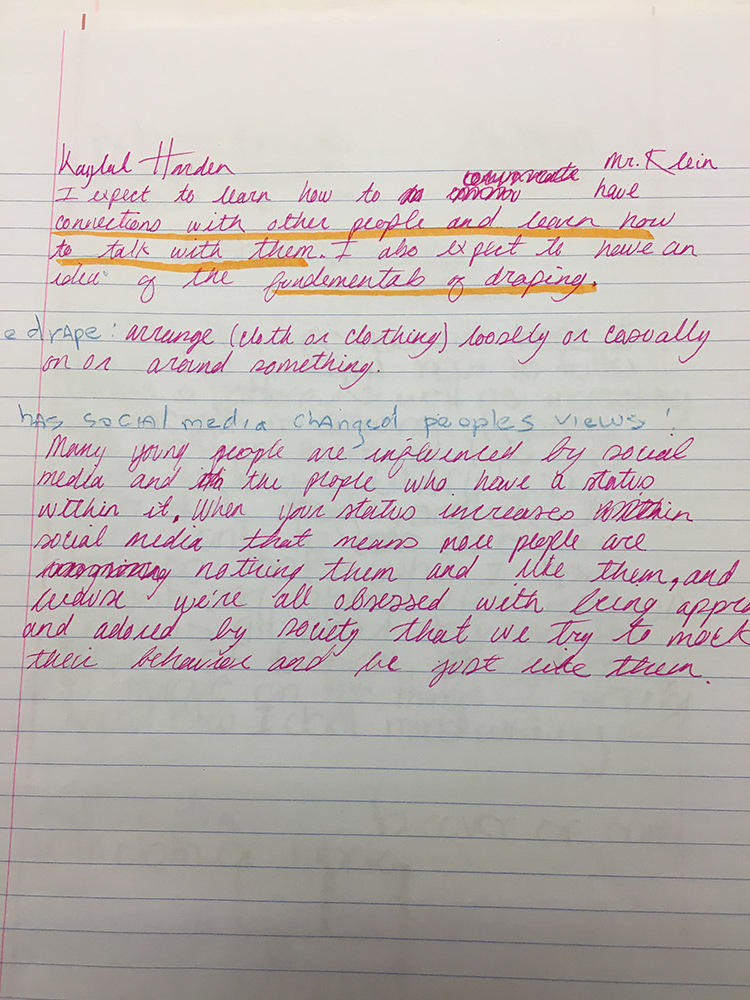 Harden Mr. Klein
I expect to learn how to have
connections with other people and learn how
to talk with them. I also expect to have an
idea of the fundementals of draping.
e drApe: arrange (cloth or clothing) loosely or casually
on or around something.
hAs sociAl mediA chAnged peoples views!
Many young people are influenced by social
media and the people who have a status
within it. When your status increases within
social media that means more people are
nothing them and like them, and
we're all obsessed with being appre
and adored by society that we try to mock
their behavior and be just like them.